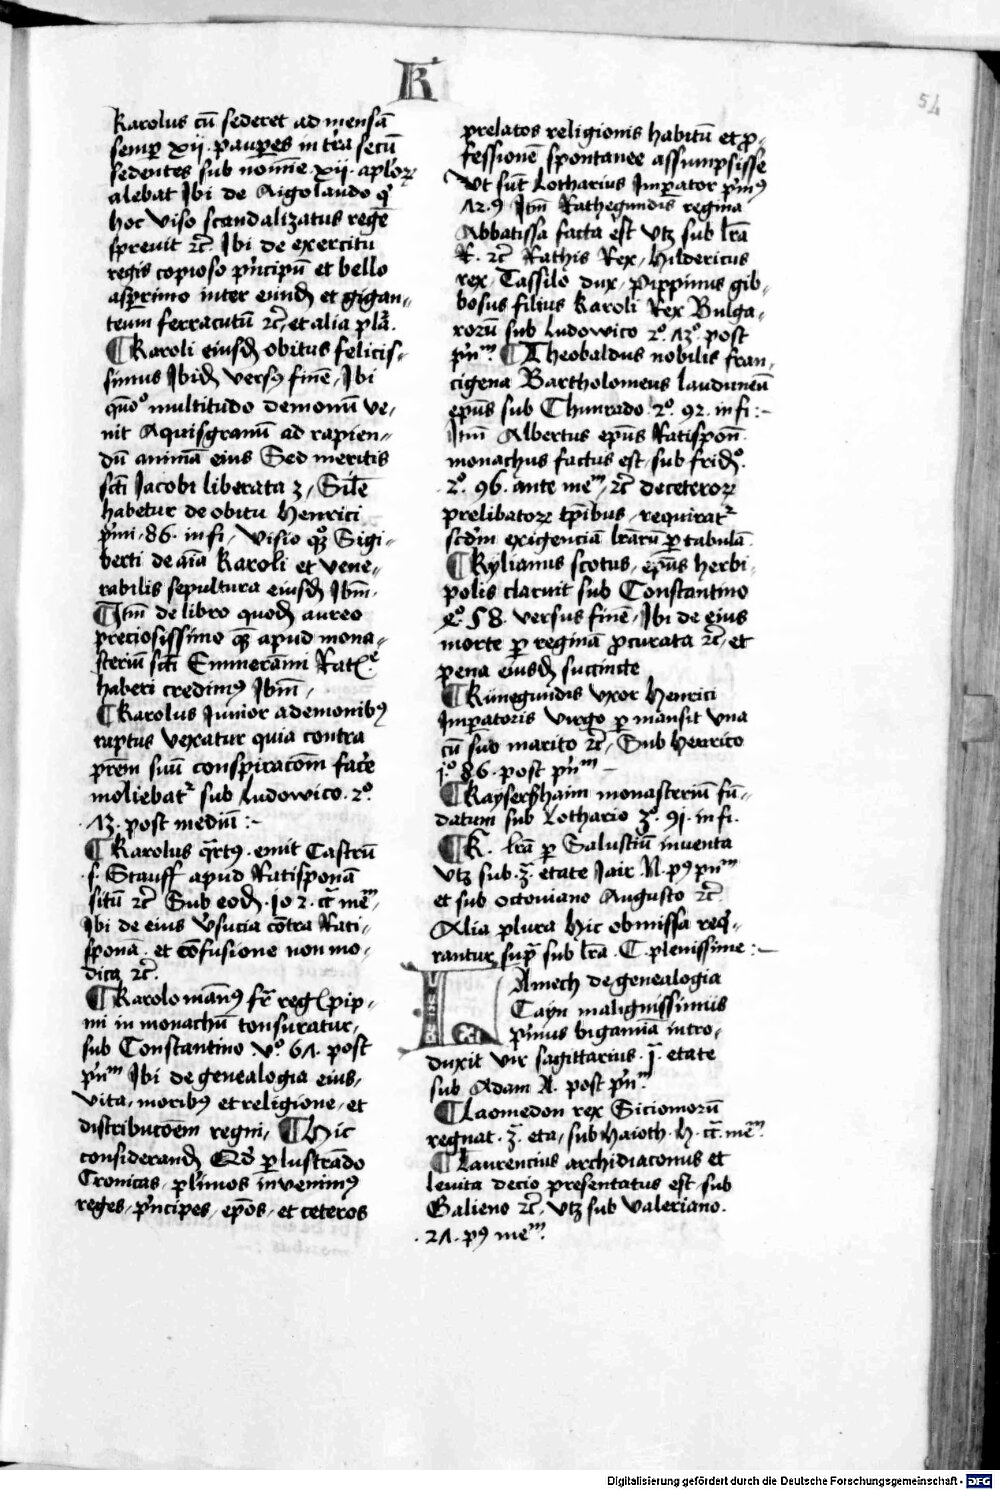 K
54
Karolus cū sederet ad mensā
semp xij. paupes in tr̄a secū
sedentes sub noīe xij. aplōꝝ
alebat Ibi de Aigolando qͥ
hoc viso scandalizatus regē
spreuit ⁊c̄. Ibi de exercitu
regis copioso pͥncipū et bello
asprimo inter eundē et gigan-
teum ferracutū ⁊c̄, et alia pla.
¶ Karoli eiusdē obitus felicis-
simus Ibidē versꝰ finē, Ibi
quōo multitudo demonū ve-
nit Aquisgranū ad rapien-
dū animā eius Sed meritis
scti Iacobi liberata ʒ, Sile
habetur de obitu Henrici
pͥmi. 86. in fi, visio qꝫ Sigi-
berti de aīa Karoli et vene-
rabilis sepultura eiusdē Ibm̄.
¶ Itm̄ de libro quodē aureo
preciosissimo qꝫ apud mona-
steriū scti Emmerāmi Ratꝭᵉ
haberi credimꝰ Ibm̄,
¶ Karolus Iunior ademonibꝰ
raptus vexatur quia contra
prēm suū conspiracōm facͤe
moliebatᷣ sub Ludowico. 2º.
.13. post mediū :~
¶ Karolus qͣrtꝰ. emit Castrū
.s. Stauff apud Ratisponā
sitū ⁊c̄ Sub eodē. 102. cͣ meᵐ,
Ibi de eius vͥsucia cōtra Rati-
sponā. et cōfusione non mo-
dica ⁊c̄.
¶ Karolomānꝰ fr̄ regꝭ pip-
ini in monachū tonsuratur,
sub Constantino vº. 61. post
pͥnᵐ Ibi de genealogia eius,
vita, moribꝰ et religione, et
distribucōem regni, ¶ Hic
considerandē Qđ p lustrādo
Cronicas, plīmos invenimꝰ
reges, pͥncipes, epōs, et ceteros
prelatos religionis habitū et ꝓ-
fessionē spontanee assumpsisse
Vt sūt Lotharius Imperator pͥmꝰ
12.9 Itm̄ Rathegundis regina
Abbatissa facta est vtꝫ sub lrā
R. ⁊c̄ Rathis Rex, Hildericus
rex, Tassilo dux, Pippinus gib-
bosus filius Karoli Rex Bulga-
rorū sub Ludowico 2º. 13º. post
pͥnᵐ. ¶ Theobaldus nobilis fran-
cigena Bartholomeus laudunēn
epūs sub Chunrado. 2º. 92. in fi :~
Itm̄ Albertus epūs Ratispon̄.
monachus factus est, sub fridº.
.2º. 96. ante meᵐ, ⁊c̄ deceteroꝝ
prelibatoꝝ tpibus, requiratᷣ
scdm̄ exigenciā lrārū p tabulā
¶ Kylianus scotus, epūs herbi-
polis claruit sub Constantino
.2º. 58. versus finē, Ibi de eius
morte p reginā ꝓcurata ⁊c̄, et
pena eiusdē succincte
¶ Künegundis vxor Henrici
Imperatoris virgo p mansit vna
cū suo marito ⁊c̄, Sub Henrico
jº 86. post pͥnᵐ —
¶ Kaysersshaim monasteriū fū-
datum sub Lothario 3º. 91. in fi.
¶ K. lrā p Salustiū inventa
vtꝫ sub. 3ͣ. etate Iair N. pꝰ pnᵐ
et sub octoviano Augusto ⁊c̄.
Alia plura hic obmissa reqͥ-
rantur supͣ sub lrā. C. plenissime :~
LAmech de genealogia
Cayn malignissimus
pͥmus bigamiā intro-
duxit vir sagittarius. jͣ. etate
sub Adam A. post pͥnᵐ.
¶ Laomedon rex Siciomorū
regnat. 3ͣ. eta, sub Haioth. H. cͣ. meᵐ.
¶ Laurencius archidiaconus et
leuita decio presentatus est, sub
Galieno ⁊c̄, vtꝫ sub Valeriano.
.21. pꝰ meᵐ.
Digitalisierung gefördert durch die Deutsche Forschungsgemeinschaft - DFG